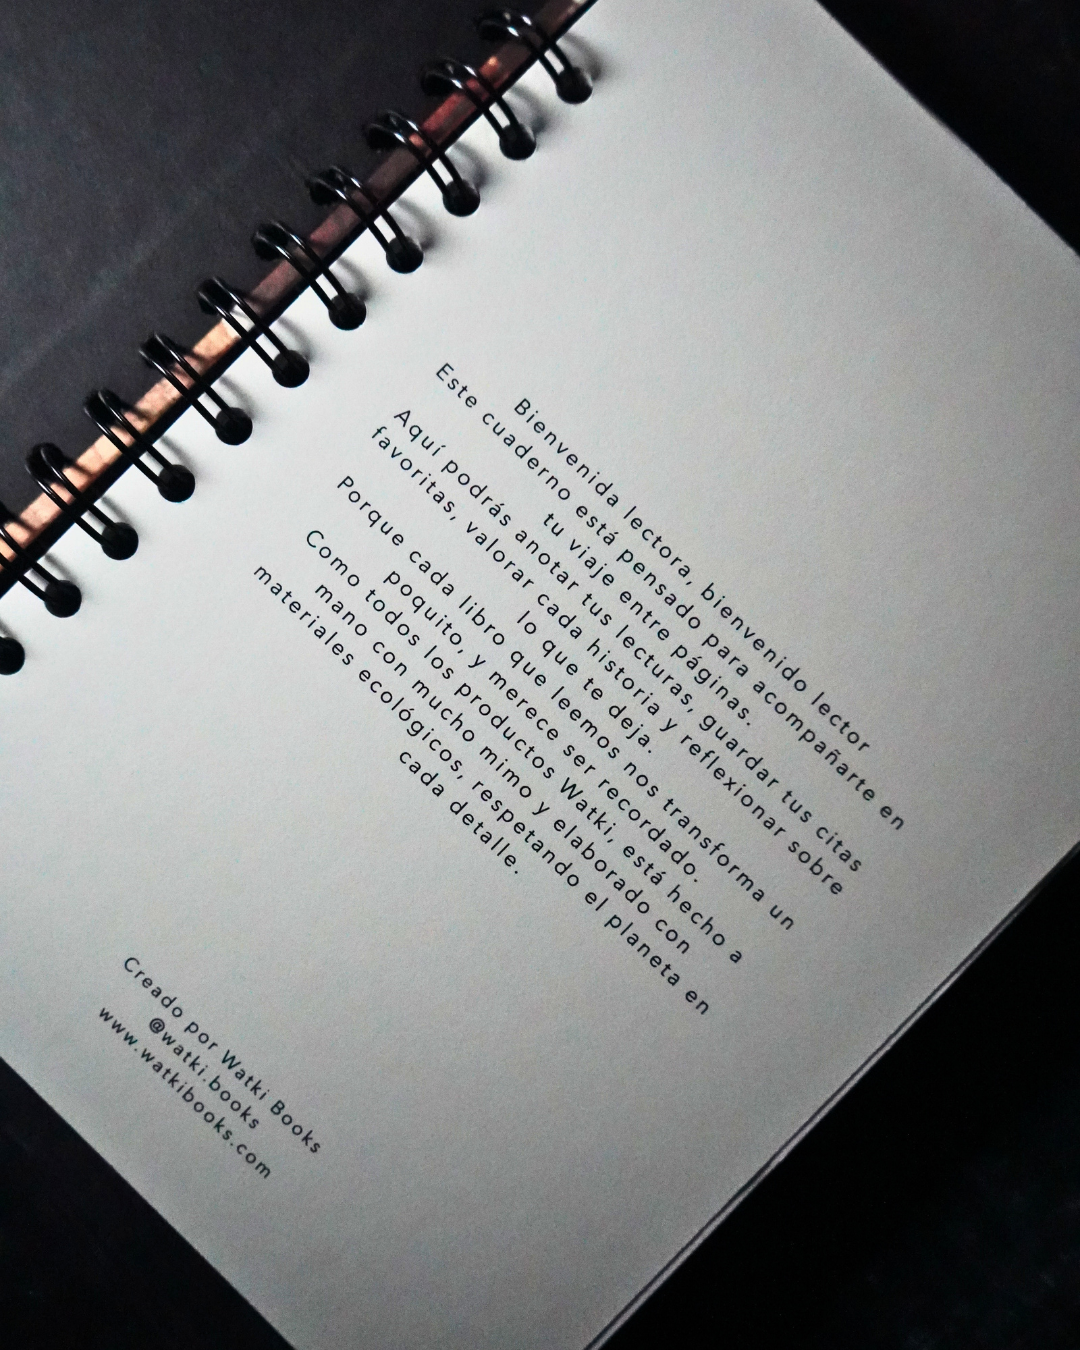 Bienvenida lectora, bienvenido lector
Este cuaderno está pensado para acompañarte en
tu viaje entre páginas.
Aquí podrás anotar tus lecturas, guardar tus citas
favoritas, valorar cada historia y reflexionar sobre
lo que te deja.
Porque cada libro que leemos nos transforma un
poquito, y merece ser recordado.
Como todos los productos Watki, está hecho a
mano con mucho mimo y elaborado con
materiales ecológicos, respetando el planeta en
cada detalle.
Creado por Watki Books
@watki.books
www.watkibooks.com